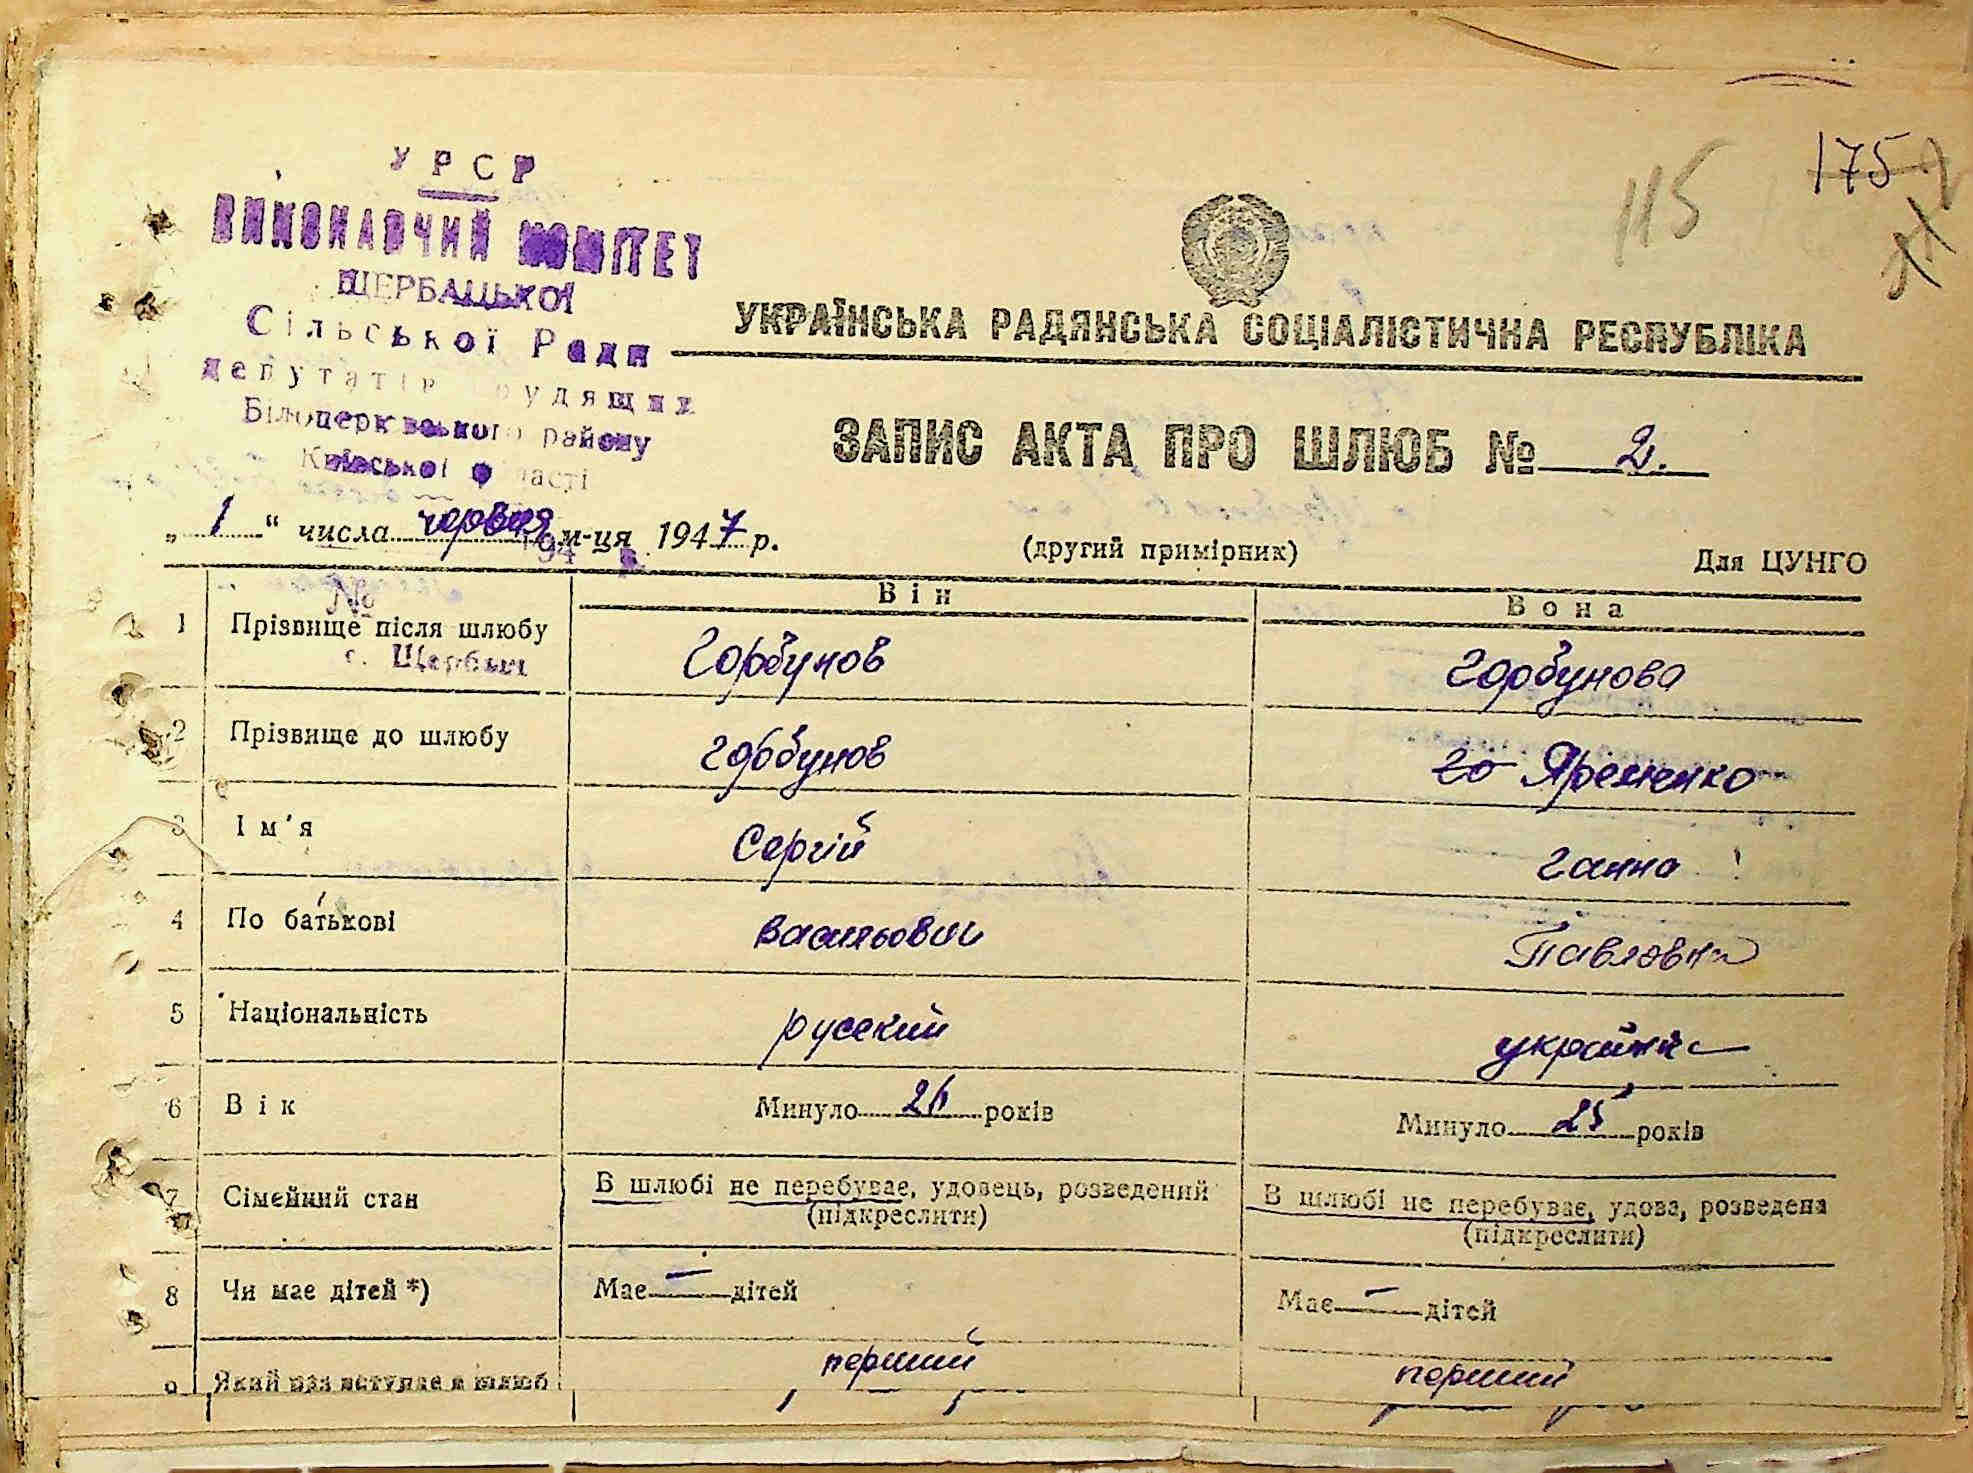 115
175
УРСР
ВИКОНАВЧИЙ КОМІТЕТ
ЩЕРБАЦЬКОЇ
Сільської Ради
депутатів трудящих
Білоцерківського району
Київської області
194 р.
№
с. Щербаки
УКРАЇНСЬКА РАДЯНСЬКА СОЦІАЛІСТИЧНА РЕСПУБЛІКА
ЗАПИС АКТА ПРО ШЛЮБ № 2.
„ 1 “ числа червня м-ця 1947 р.
(другий примірник)
Для ЦУНГО
Він
Вона
1 Прізвище після шлюбу Горбунов Горбунова
2 Прізвище до шлюбу Горбунов Го Яременко
3 Ім'я Сергій Ганна
4 По батькові Васильович Павловна
5 Національність русский україн
6 Вік Минуло 26 років Минуло 25 років
7 Сімейний стан В шлюбі не перебуває, удовець, розведений В шлюбі не перебуває, удова, розведена
(підкреслити) (підкреслити)
8 Чи має дітей *) Має — дітей Має — дітей
9 Який раз вступає в шлюб перший перший